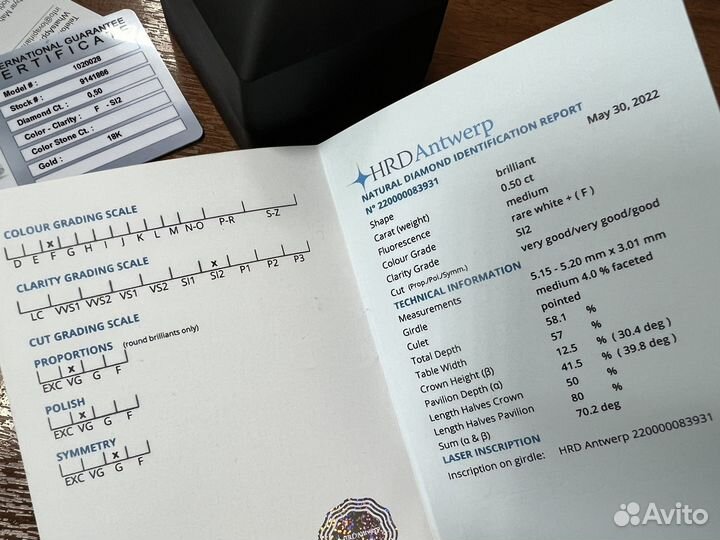 INTERNATIONAL GUARANTEE
CERTIFICATE
Model # : 1020028
Stock # : 9141866
Diamond Ct. : 0,50
Color - Clarity : F - SI2
Color Stone Ct. :
Gold : 18K
COLOUR GRADING SCALE
x
D E F G H I J K L M N-O P-R S-Z
CLARITY GRADING SCALE
x
LC VVS1 VVS2 VS1 VS2 SI1 SI2 P1 P2 P3
CUT GRADING SCALE
PROPORTIONS (round brilliants only)
x
EXC VG G F
POLISH
x
EXC VG G F
SYMMETRY
x
EXC VG G F
HRD Antwerp
NATURAL DIAMOND IDENTIFICATION REPORT
N° 220000083931 May 30, 2022
Shape brilliant
Carat (weight) 0.50 ct
Fluorescence medium
Colour Grade rare white + ( F )
Clarity Grade SI2
Cut (Prop./Pol./Symm.) very good/very good/good
TECHNICAL INFORMATION
Measurements 5.15 - 5.20 mm x 3.01 mm
Girdle medium 4.0 % faceted
Culet pointed
Total Depth 58.1 %
Table Width 57 %
Crown Height (β) 12.5 % ( 30.4 deg )
Pavilion Depth (α) 41.5 % ( 39.8 deg )
Length Halves Crown 50 %
Length Halves Pavilion 80 %
Sum (α & β) 70.2 deg
LASER INSCRIPTION
Inscription on girdle: HRD Antwerp 220000083931
Avito